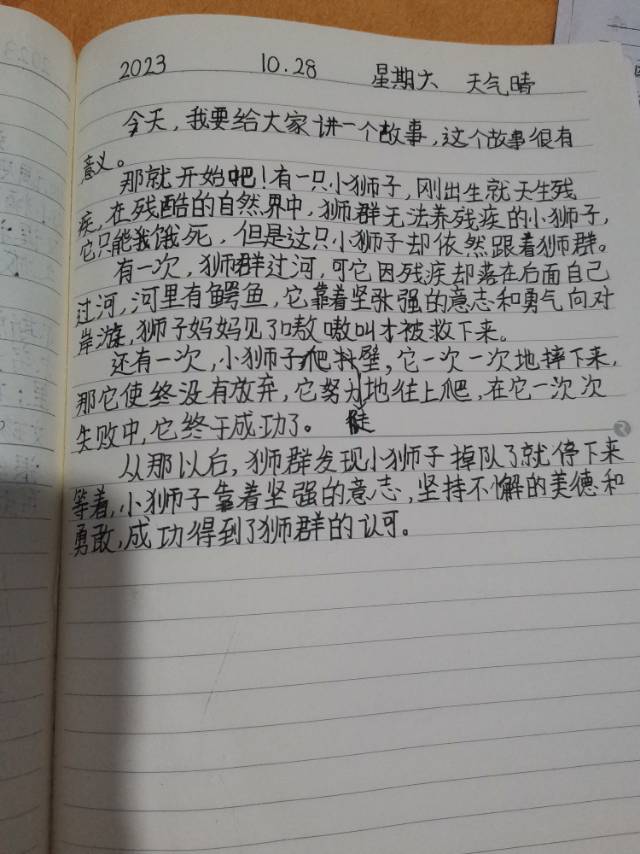 2023 10.28 星期六 天气晴
今天,我要给大家讲一个故事,这个故事很有
意义。
那就开始吧!有一只小狮子,刚出生就天生残
疾,在残酷的自然界中,狮群无法养残疾的小狮子,
它只能我饿死,但是这只小狮子却依然跟着狮群。
有一次,狮群过河,可它因残疾却落在后面自己
过河,河里有鳄鱼,它靠着坚张强的意志和勇气向对
岸游,狮子妈妈见了嗷嗷叫才被救下来。
还有一次,小狮子爬壁,它一次一次地摔下来,
那它使终没有放弃,它努力地往上爬,在它一次次
失败中,它终于成功了。 陡
从那以后,狮群发现小狮子掉队了就停下来
等着,小狮子靠着坚强的意志,坚持不懈的美德和
勇敢,成功得到了狮群的认可。